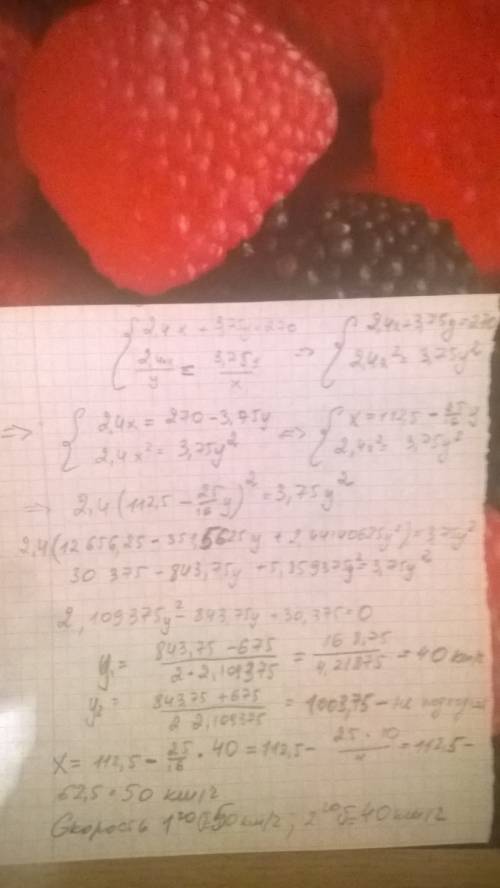 { 2,4x + 3,75y = 270 => { 2,4x + 3,75y = 270
2,4x/y = 3,75y/x 2,4x² = 3,75y²
=> { 2,4x = 270 - 3,75y => { x = 112,5 - 25/16 y
2,4x² = 3,75y² 2,4x² = 3,75y²
=> 2,4(112,5 - 25/16 y)² = 3,75y²
2,4(12656,25 - 351,5625y + 2,44140625y²) = 3,75y²
30 375 - 843,75y + 5,859375y² = 3,75y²
2,109375y² - 843,75y + 30,375 = 0
y₁ = (843,75 - 675)/(2 · 2,109375) = 168,75/4,21875 = 40 км/ч
y₂ = (843,75 + 675)/(2 · 2,109375) = - не подходит
x = 112,5 - 25/16 · 40 = 112,5 - 25 · 10/4 = 112,5 -
62,5 = 50 км/ч
Скорость 1го = 50 км/ч; 2го = 40 км/ч